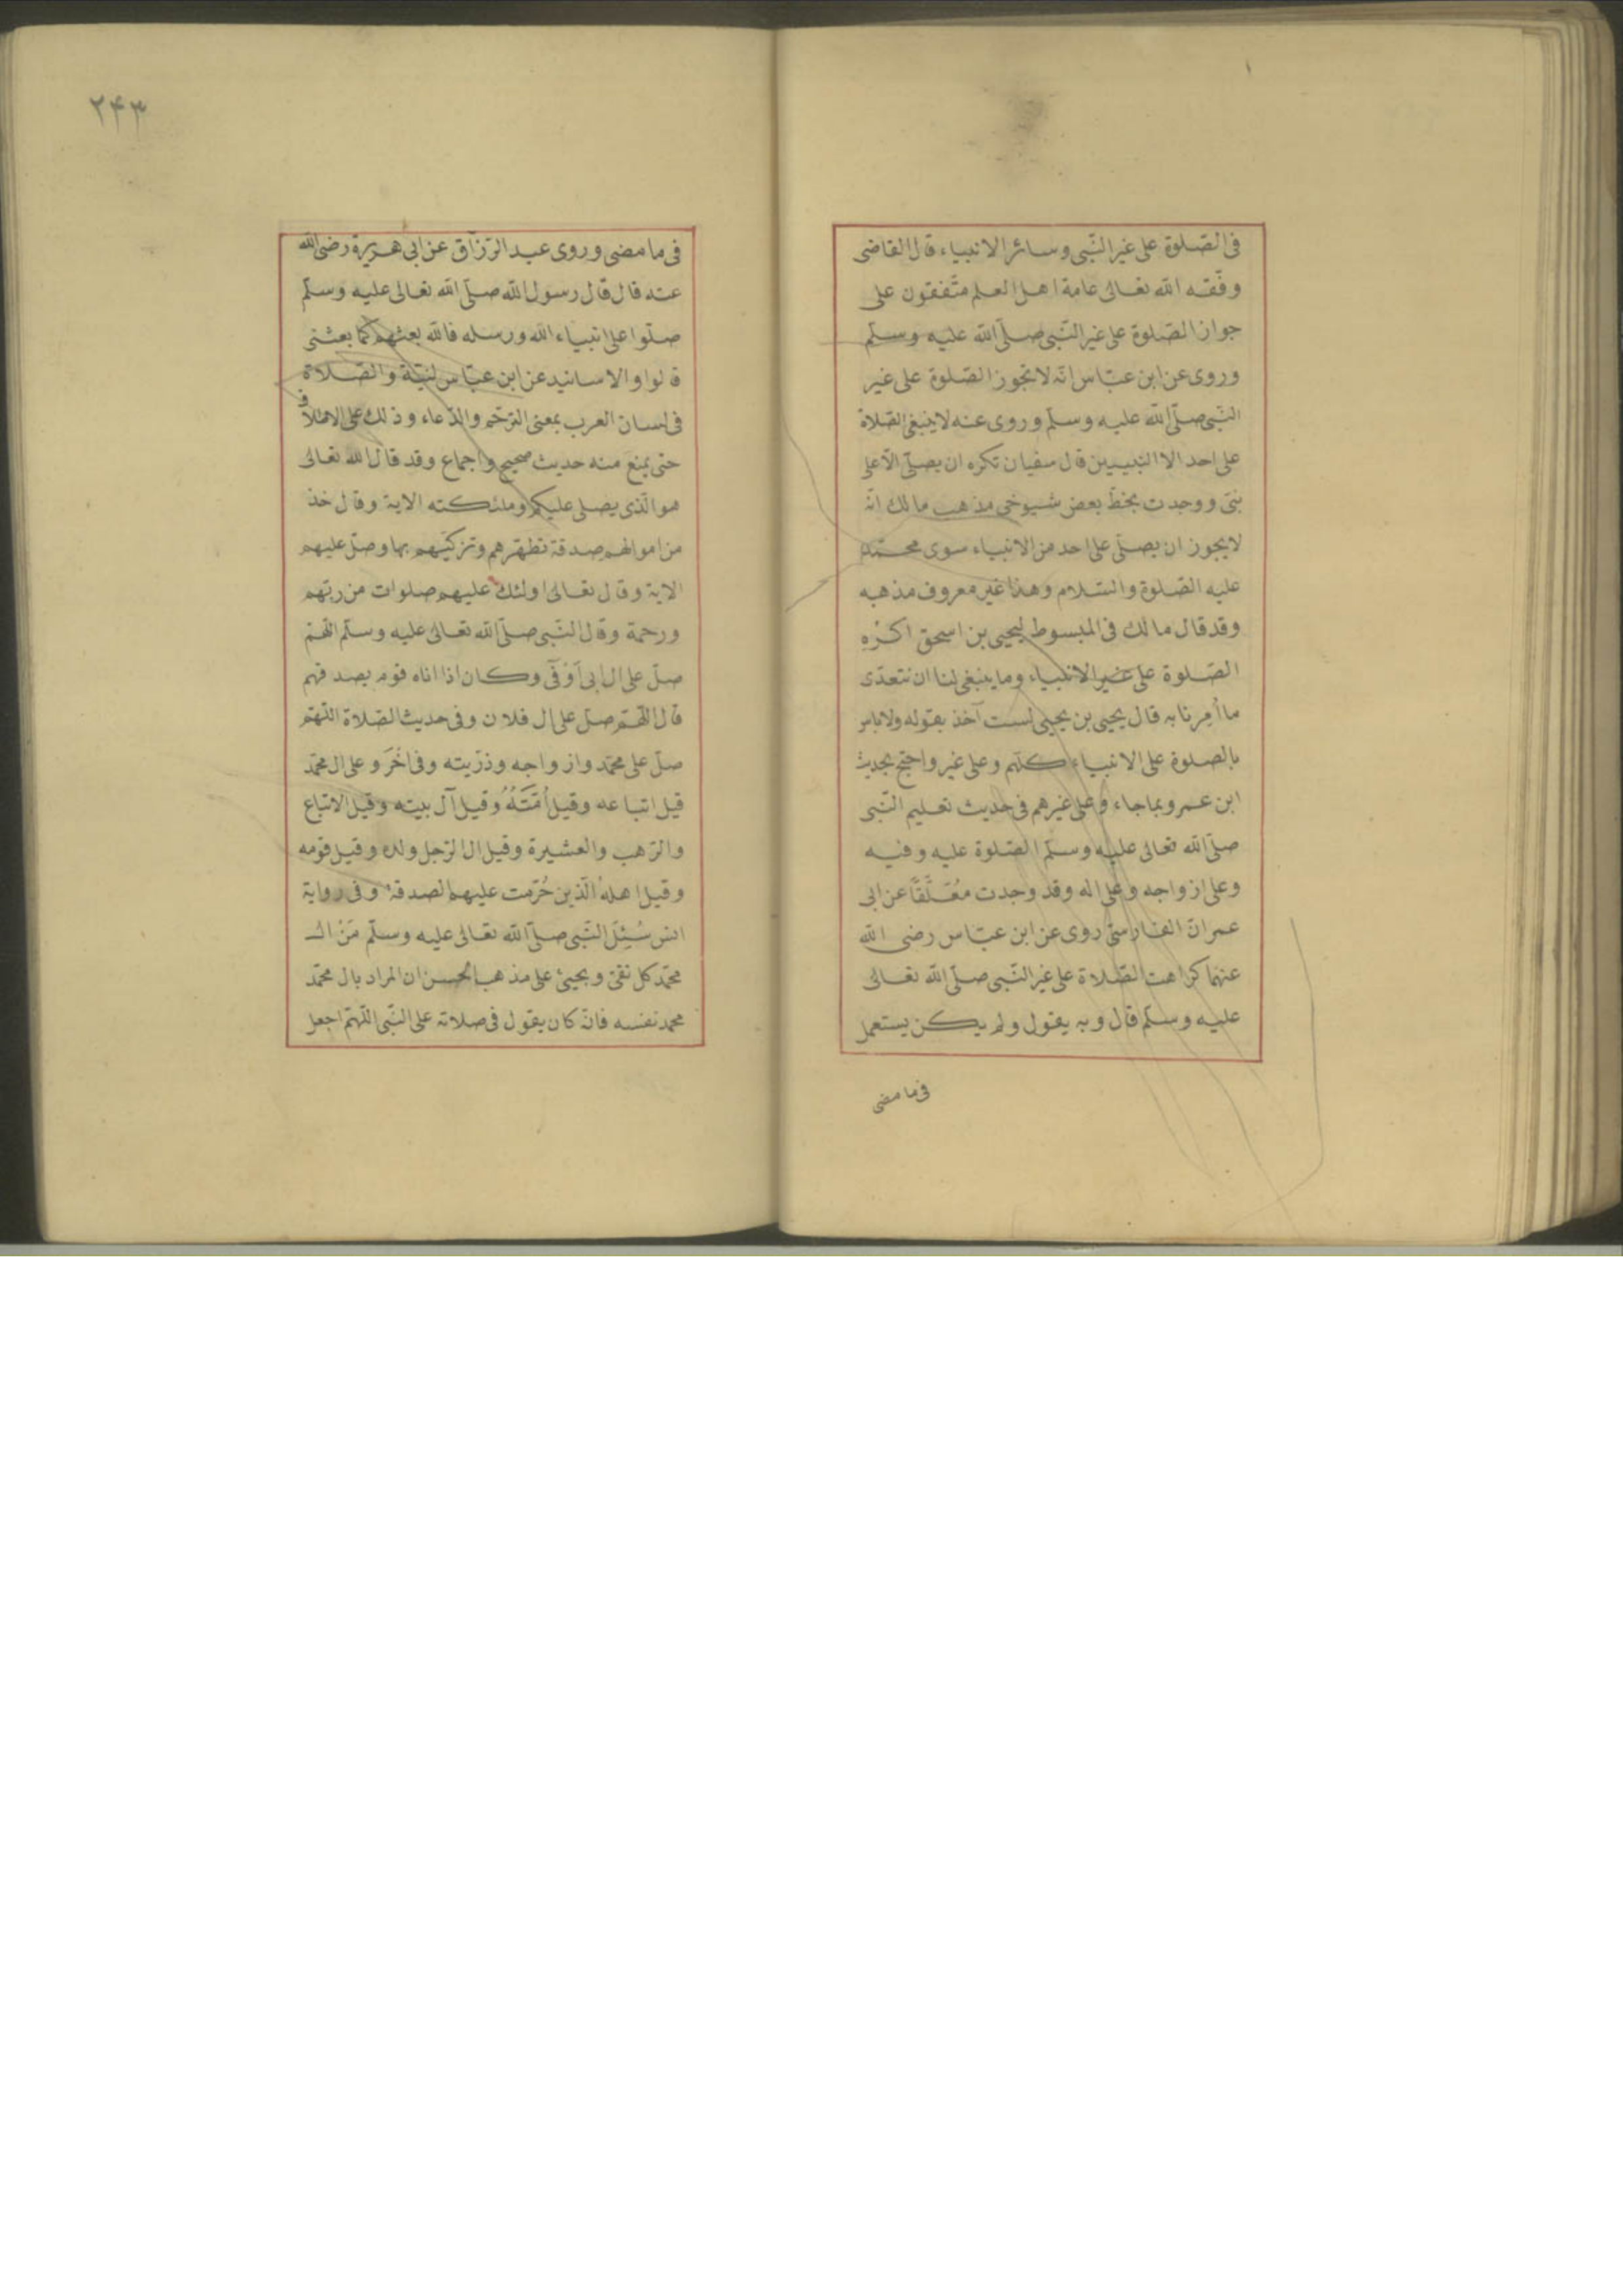 فى الصّلوة على غير النّبى وسائر الانبياء قال القاضى
وفّقه الله تعالى عامة اهل العلم متّفقون على
جواز الصّلوة على غير النّبى صلّى الله عليه وسلّم
وروى عن ابن عبّاس انّه لا تجوز الصّلوة على غير
النّبى صلّى الله عليه وسلّم وروى عنه لا ينبغى الصّلاة
على احد الا النبيين قال سفيان تكره ان يصلّى الّا على
نبىّ ووجدت بخطّ بعض شيوخى مذهب مالك انّه
لا يجوز ان يصلّى على احد من الانبياء سوى محمّد
عليه الصّلوة والسّلام وهذا غير معروف مذهبه
وقد قال مالك فى المبسوط ليحيى بن اسحق اكْرَهِ
الصّلوة على غير الانبياء وما ينبغى لنا ان نتعدّى
ما اُمِرنا به قال يحيى بن يحيى لست آخذ بقوله ولا باس
بالصلوة على الانبياء كلّهم وعلى غير واحتج بحديث
ابن عمر وبما جاء وعلى غيرهم فى حديث تعليم النّبى
صلّى الله تعالى عليه وسلّم الصّلوة عليه وفيه
وعلى ازواجه وعلى اله وقد وجدت مُعَلَّقًا عن ابى
عمران الفارسىّ روى عن ابن عبّاس رضى الله
عنهما كراهت الصّلاة على غير النّبى صلّى الله تعالى
عليه وسلّم قال وبه يقول ولم يكن يستعمل
فى ما مضى
۲۴۳
فى ما مضى وروى عبد الرّزّاق عن ابى هريرة رضى الله
عنه قال قال رسول الله صلّى الله تعالى عليه وسلّم
صلّوا على انبياء الله ورسله فالله بعثهم كما بعثنى
قالوا والاسانيد عن ابن عبّاس لنيّة والصّلاة
فى لسان العرب بمعنى الترحّم والدّعاء وذلك على الاطلاق
حتى يمنع منه حديث صحيح واجماع وقد قال الله تعالى
هو الّذى يصلى عليكم وملئكته الاية وقال خذ
من اموالهم صدقة تطهّرهم وتزكيّهم بها وصلّ عليهم
الاية وقال تعالى اولئك عليهم صلوات من ربّهم
ورحمة وقال النّبى صلّى الله تعالى عليه وسلّم اللّهمّ
صلّ على ال ابى اَوْفى وكان اذا اتاه قوم بصدقتهم
قال اللّهمّ صلّ على ال فلان وفى حديث الصّلاة اللّهمّ
صلّ على محمّد وازواجه وذرّيته وفى اخَرَ وعلى ال محمّد
قيل اتباعه وقيل اُمَّتُهُ وقيل آل بيته وقيل الاتباع
والرّهب والعشيرة وقيل ال الرّجل ولده وقيل قومه
وقيل اهلهُ الّذين حُرّمت عليهم الصدقة وفى رواية
انس سُئِلَ النّبى صلّى الله تعالى عليه وسلّم مَنْ الـ
محمّد كل تقىّ ويجيئ على مذهب الحسن ان المراد بال محمّد
محمد نفسه فانّه كان يقول فى صلاته على النّبى اللّهمّ اجعل